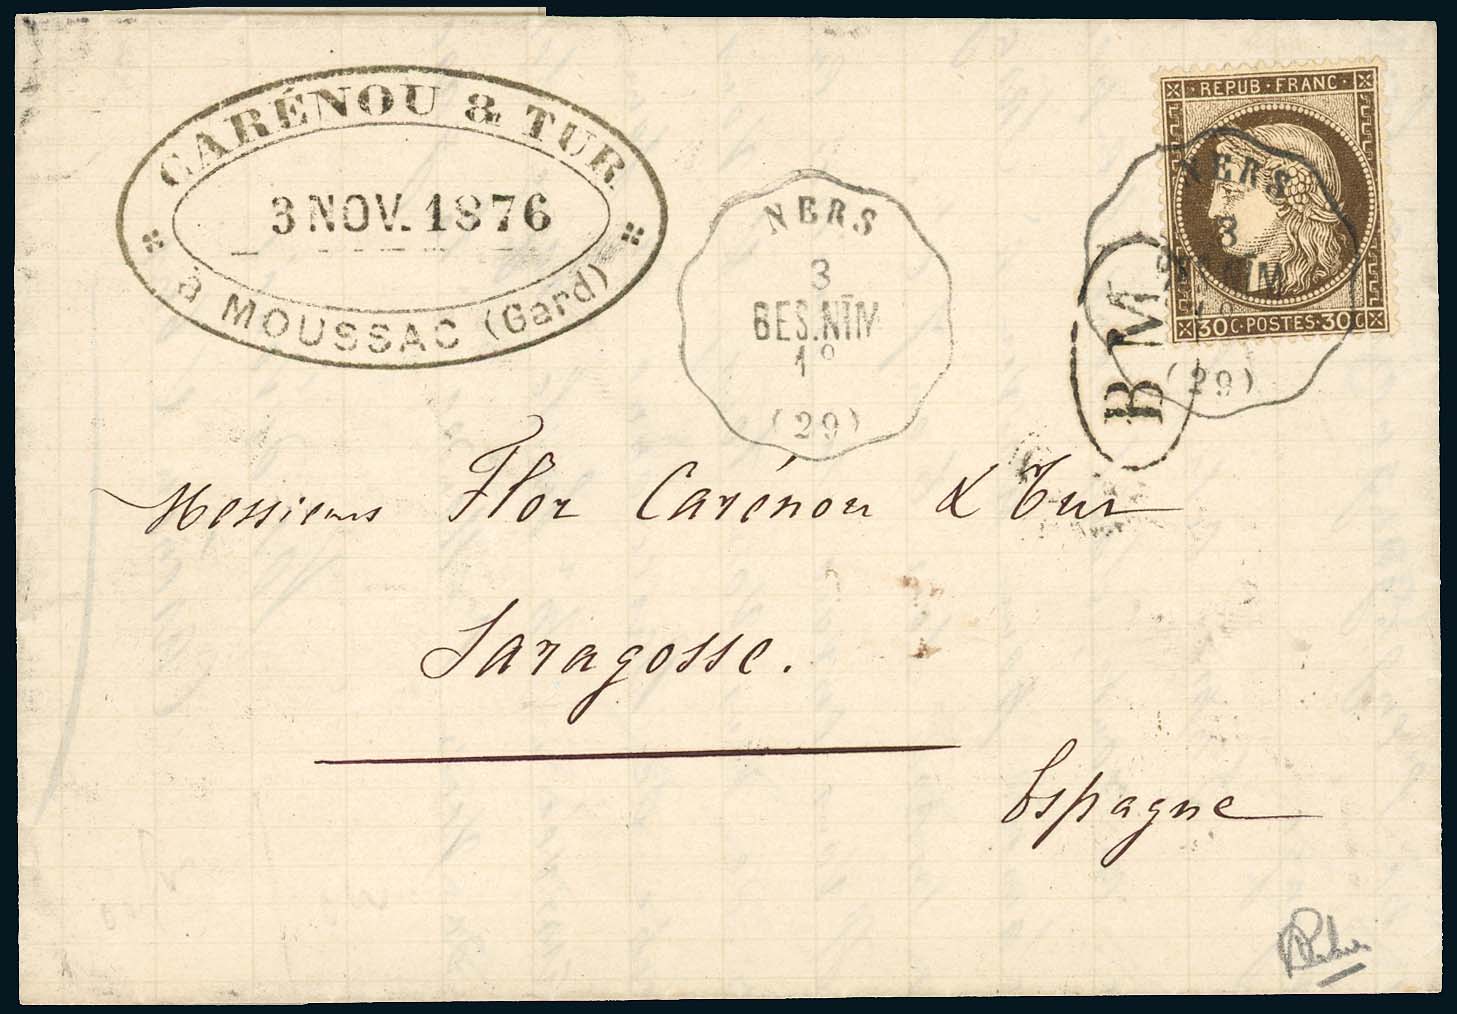 CARÉNOU & TUR.
3 NOV. 1876
à MOUSSAC (Gard)
NERS
3
BES.NÎM
1°
(29)
REPUB·FRANC·
30C·POSTES·30C
NERS
3
NÎM
(29)
BM
Messieurs Flor Carénou & Tur
Saragosse.
Espagne